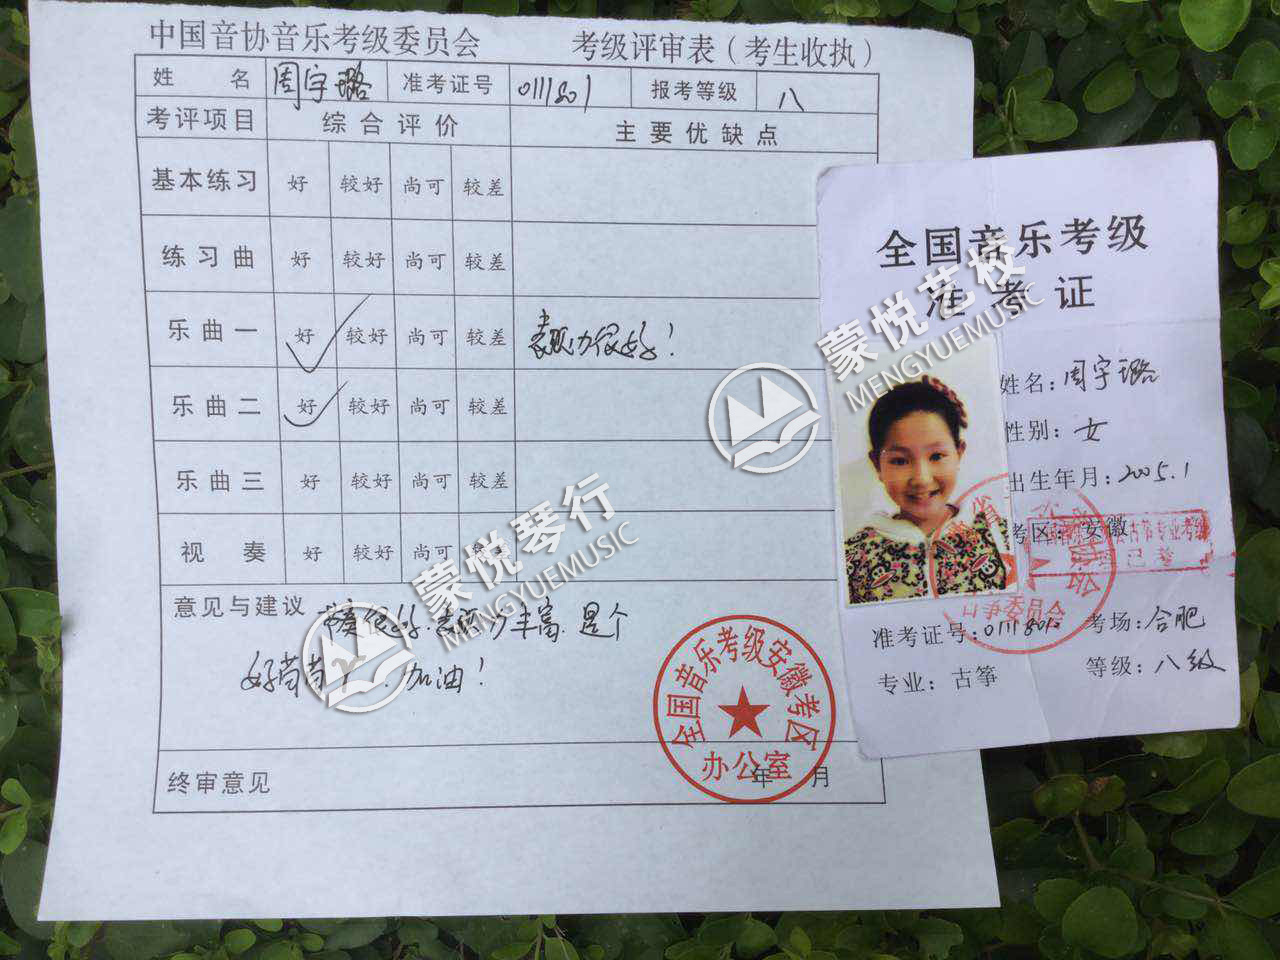 中国音协音乐考级委员会 考级评审表（考生收执）
姓 名 周宇璐 准考证号 0111801 报考等级 八
考评项目 综合评价 主要优缺点
基本练习 好 较好 尚可 较差
练习曲 好 较好 尚可 较差
乐曲一 好 较好 尚可 较差 表现力很好！
乐曲二 好 较好 尚可 较差
乐曲三 好 较好 尚可 较差
视 奏 好 较好 尚可
意见与建议 节奏很好.表现力丰富.是个
好苗苗 加油！
全国音乐考级安徽考区
办公室
年 月
终审意见
全国音乐考级
准考证
姓名：周宇璐
性别：女
出生年月：2005.1
考区：安徽
准考证号：0111801 考场：合肥
专业：古筝 等级：八级
蒙悦艺校
MENGYUEMUSIC
蒙悦琴行
MENGYUEMUSIC